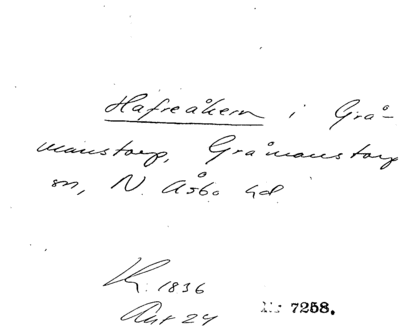 Hafreåkern i Grå-
manstorp, Gråmanstorp
sn, N. Åsbo hd.
Lm. 1836
Akt 24
Nr 7258.